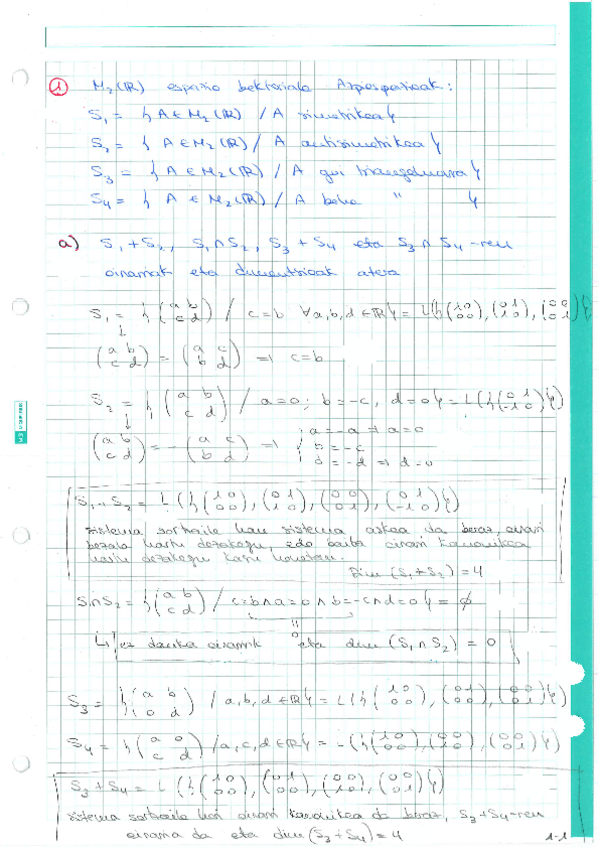 1 M₂(ℝ) espazio bektoriala Azpiespazioak:
S₁ = { A ∈ M₂(ℝ) / A simetrikoa }
S₂ = { A ∈ M₂(ℝ) / A antisimetrikoa }
S₃ = { A ∈ M₂(ℝ) / A goi triangeluarra }
S₄ = { A ∈ M₂(ℝ) / A behe " }
a) S₁+S₂, S₁∩S₂, S₃+S₄ eta S₃∩S₄-ren
oinarriak eta dimentsioak atera
S₁ = { (a b; c d) / c=b ∀a,b,d ∈ ℝ } = L({ (1 0; 0 0), (0 1; 1 0), (0 0; 0 1) })
(a b; c d) = (a c; b d) ⇒ c=b
S₂ = { (a b; c d) / a=0; b=-c, d=0 } = L({ (0 1; -1 0) })
(a b; c d) = -(a c; b d) ⇒ { a=-a ⇒ a=0
b=-c
d=-d ⇒ d=0
S₁+S₂ = L({ (1 0; 0 0), (0 1; 1 0), (0 0; 0 1), (0 1; -1 0) })
sistema sortzaile hau sistema askea da beraz, oinarri
bezala hartu dezakegu, edo baita oinarri kanonikoa
hartu dezakegu kasu honetan.
Dim (S₁+S₂) = 4
S₁∩S₂ = { (a b; c d) / c=b ∧ a=0 ∧ b=-c ∧ d=0 } = ∅
0
↳ ez dauka oinarririk eta dim (S₁∩S₂) = 0
S₃ = { (a b; 0 d) / a,b,d ∈ ℝ } = L({ (1 0; 0 0), (0 1; 0 0), (0 0; 0 1) })
S₄ = { (a 0; c d) / a,c,d ∈ ℝ } = L({ (1 0; 0 0), (0 0; 1 0), (0 0; 0 1) })
S₃+S₄ = L({ (1 0; 0 0), (0 1; 0 0), (0 0; 1 0), (0 0; 0 1) })
sistema sortzaile hori oinarri kanonikoa da beraz, S₃+S₄-ren
oinarria da eta dim(S₃+S₄) = 4
1-1